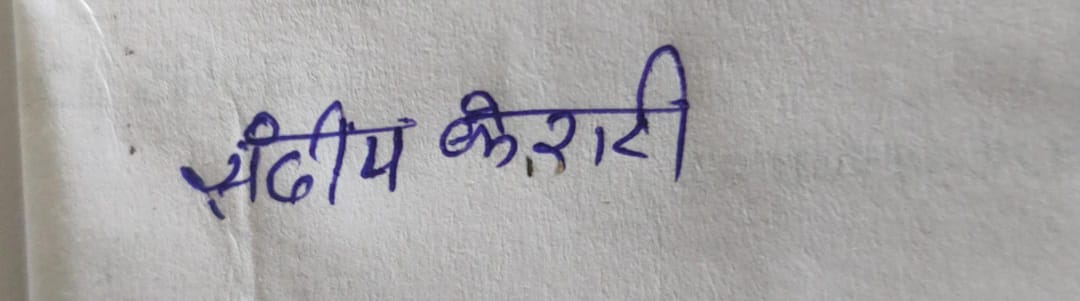 संदीप केराटी